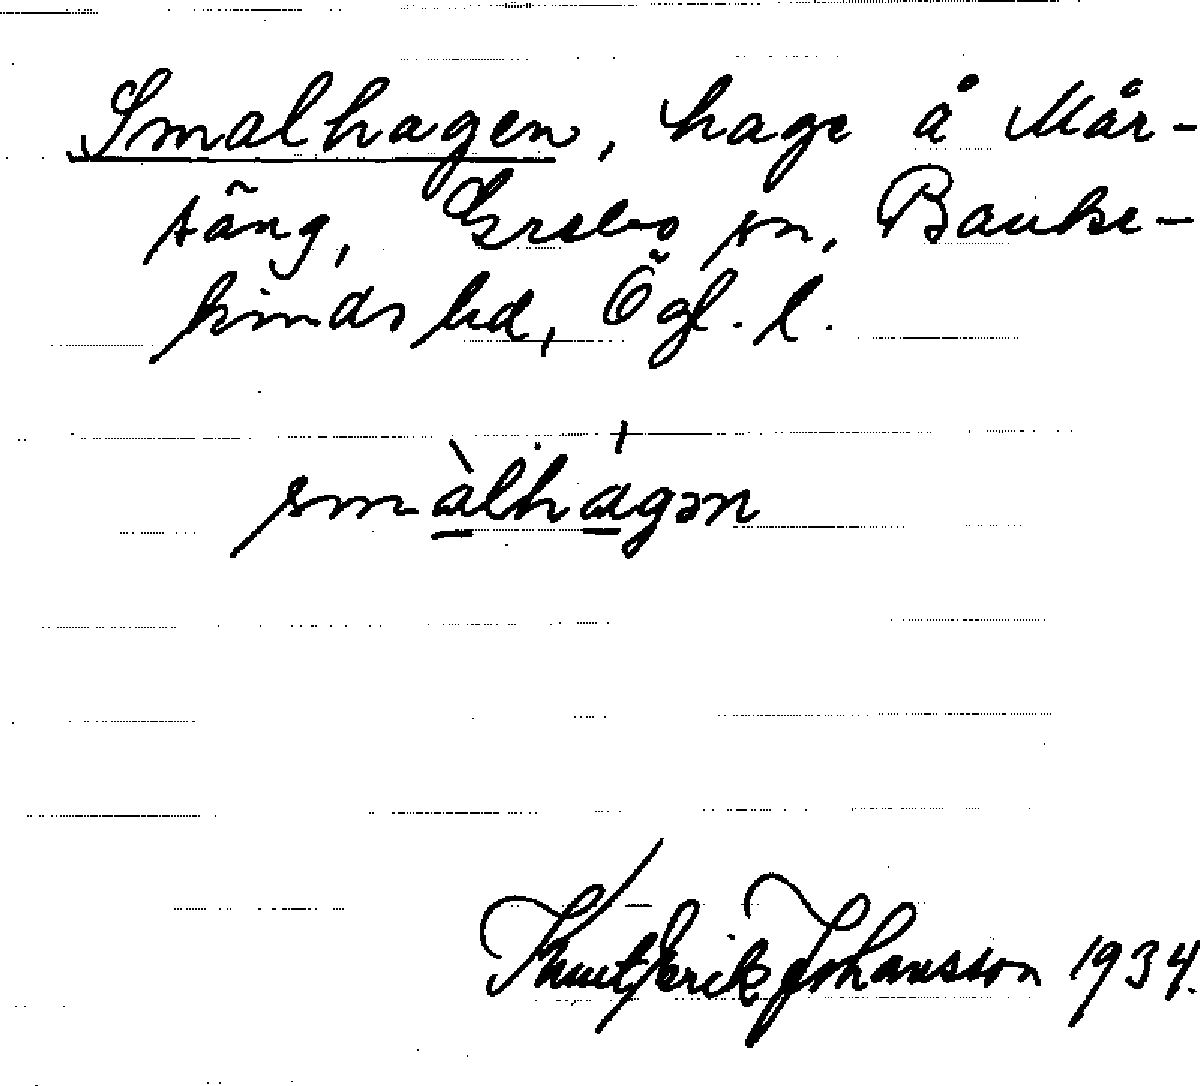 Smalhagen, hage å Mår-
täng, Grebo sn, Banke-
kinds hd, Ögl. l.
smàlhàgən
Knut Erik Johansson 1934.